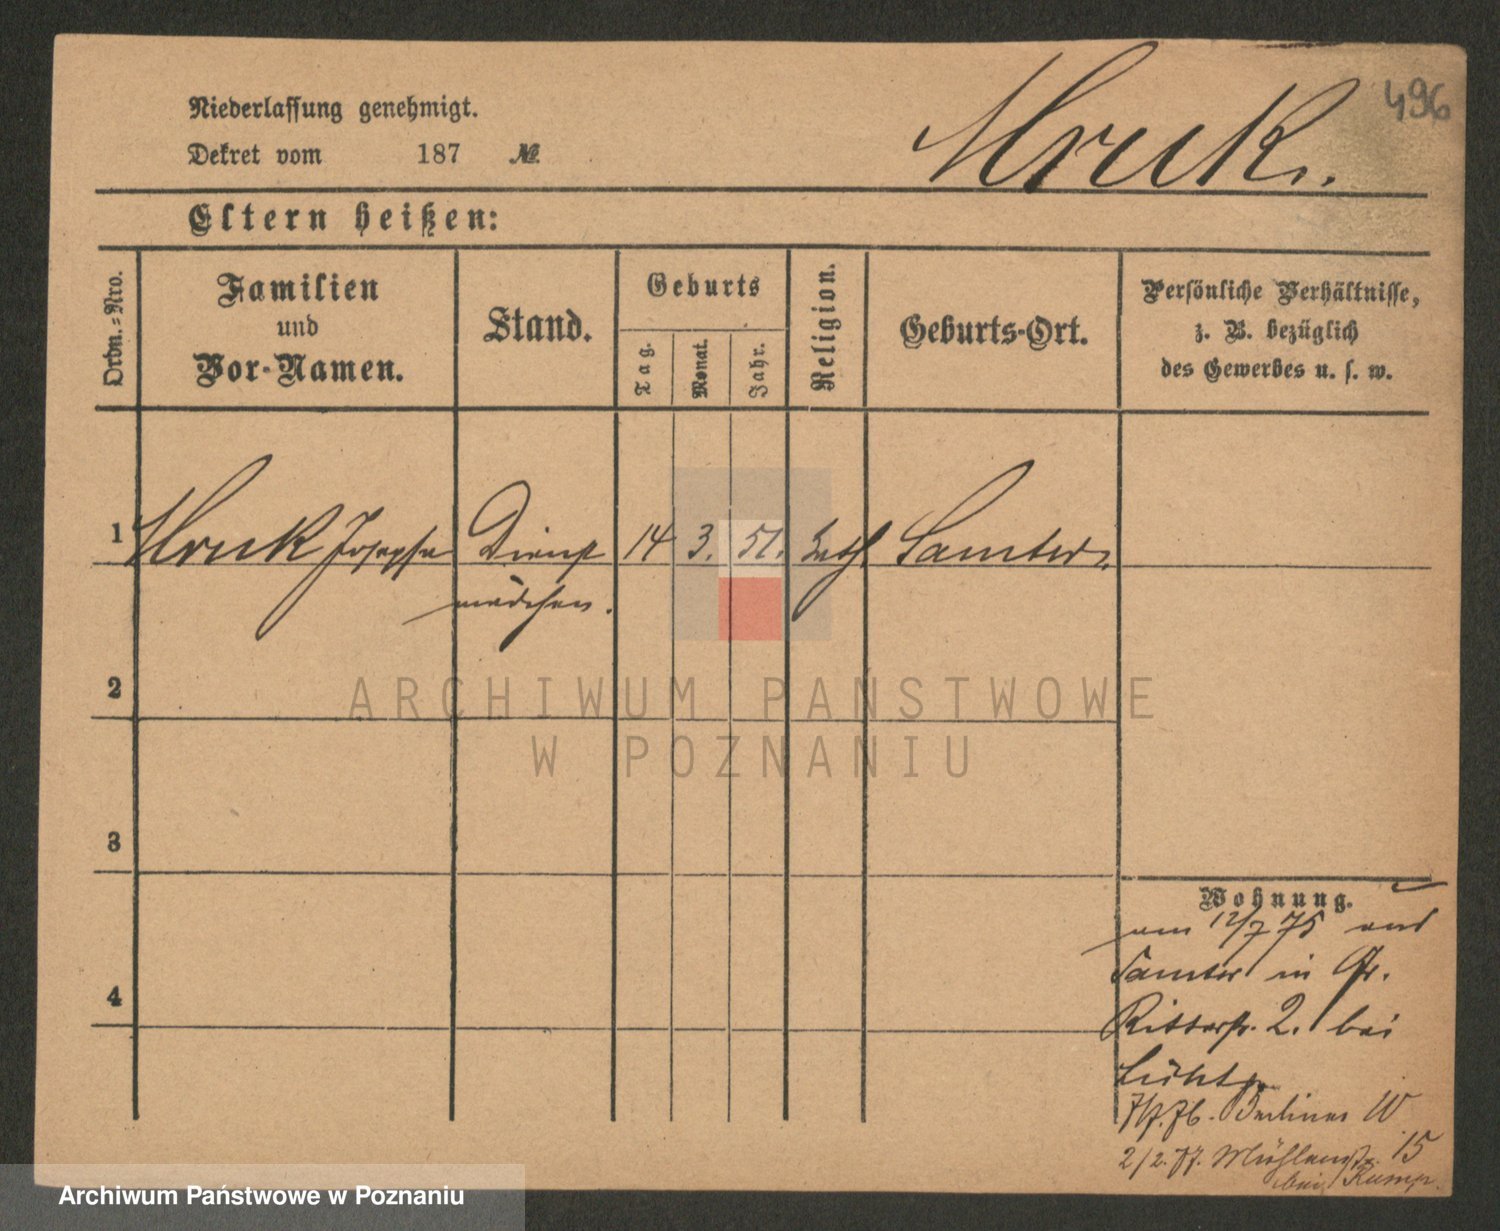 496
Niederlassung genehmigt.
Dekret vom 187 №
Mruk.
Eltern heißen:
Ordn.-Nro.
Familien
und
Vor-Namen.
Stand.
Geburts
Tag.
Monat.
Jahr.
Religion.
Geburts-Ort.
Persönliche Verhältnisse,
z. B. bezüglich
des Gewerbes u. s. w.
1 Mruk Josepha Dienst 14 3. 51. kath Samter
mädchen.
2
3
4
ARCHIWUM PAŃSTWOWE
W POZNANIU
Wohnung.
am 12/7 75 aus
Samter in Gr.
Ritterstr. 2. bei
76. Berliner
2/2. 77. Mühlenstr. 15
bei
Archiwum Państwowe w Poznaniu